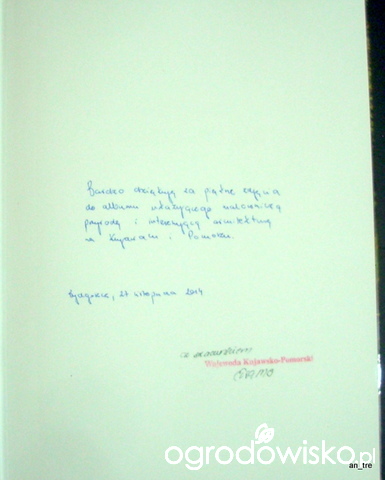 Bardzo dziękuję za piękne zdjęcia
do albumu ukazującego malowniczą
przyrodę i interesującą architekturę
na Kujawach i Pomorzu.
Bydgoszcz, 21 listopada 2014
Wojewoda Kujawsko-Pomorski
ogrodowisko.pl
an_tre